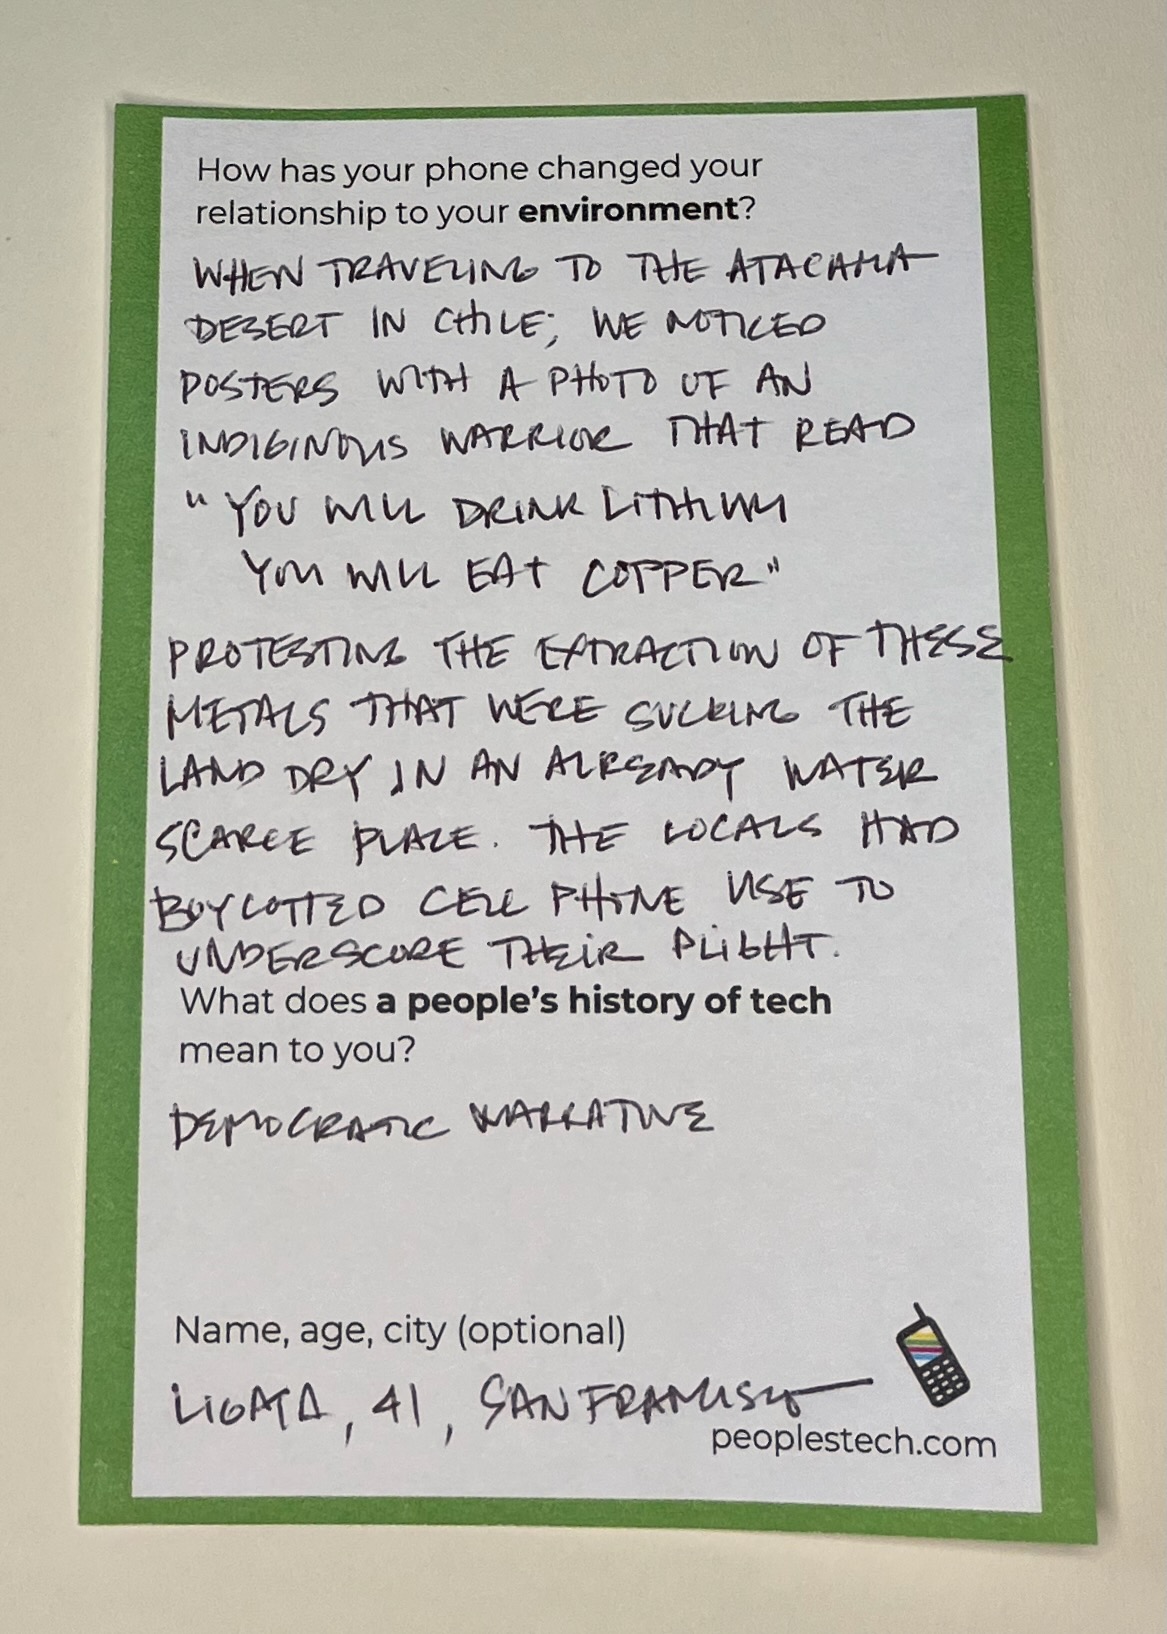 How has your phone changed your
relationship to your environment?
WHEN TRAVELING TO THE ATACAMA
DESERT IN CHILE, WE NOTICED
POSTERS WITH A PHOTO OF AN
INDIGINOUS WARRIOR THAT READ
"YOU WILL DRINK LITHIUM
YOU WILL EAT COPPER"
PROTESTING THE EXTRACTION OF THESE
METALS THAT WERE SUCKING THE
LAND DRY IN AN ALREADY WATER
SCARCE PLACE. THE LOCALS HAD
BOYCOTTED CELL PHONE USE TO
UNDERSCORE THEIR PLIGHT.
What does a people's history of tech
mean to you?
DEMOCRATIC NARRATIVE
Name, age, city (optional)
LIGAIA, 41, SAN FRANCISCO
peoplestech.com